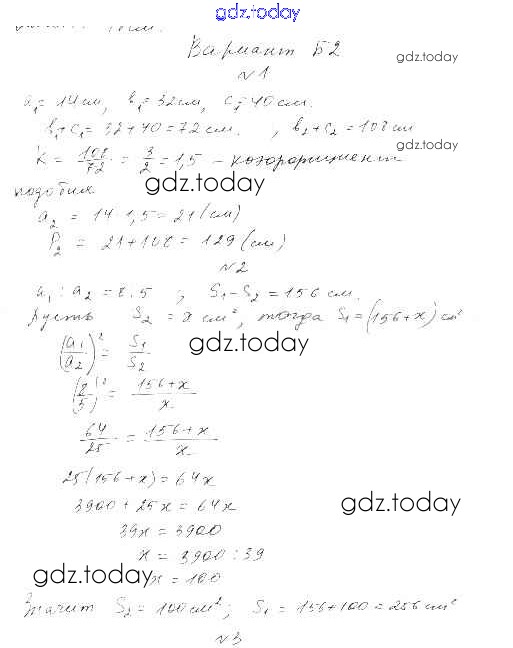 gdz.today
Вариант Б2
gdz.today
№1
a₁ = 14 см, b₁ = 32 см, c₁ = 40 см.
b₁ + c₁ = 32 + 40 = 72 см. , b₂ + c₂ = 108 см
gdz.today
K = 108/72 = 3/2 = 1,5 – коэффициент
подобия
gdz.today
a₂ = 14 · 1,5 = 21 (см)
P₂ = 21 + 108 = 129 (см)
№2
a₁ : a₂ = 8 : 5 ; S₁ – S₂ = 156 см.
Пусть S₂ = x см², тогда S₁ = (156 + x) см²
(a₁/a₂)² = S₁/S₂
gdz.today
(8/5)² = (156 + x)/x
64/25 = (156 + x)/x
25(156 + x) = 64x
3900 + 25x = 64x
gdz.today
39x = 3900
x = 3900 : 39
gdz.today
x = 100
Значит S₂ = 100 см²; S₁ = 156 + 100 = 256 см²
№3